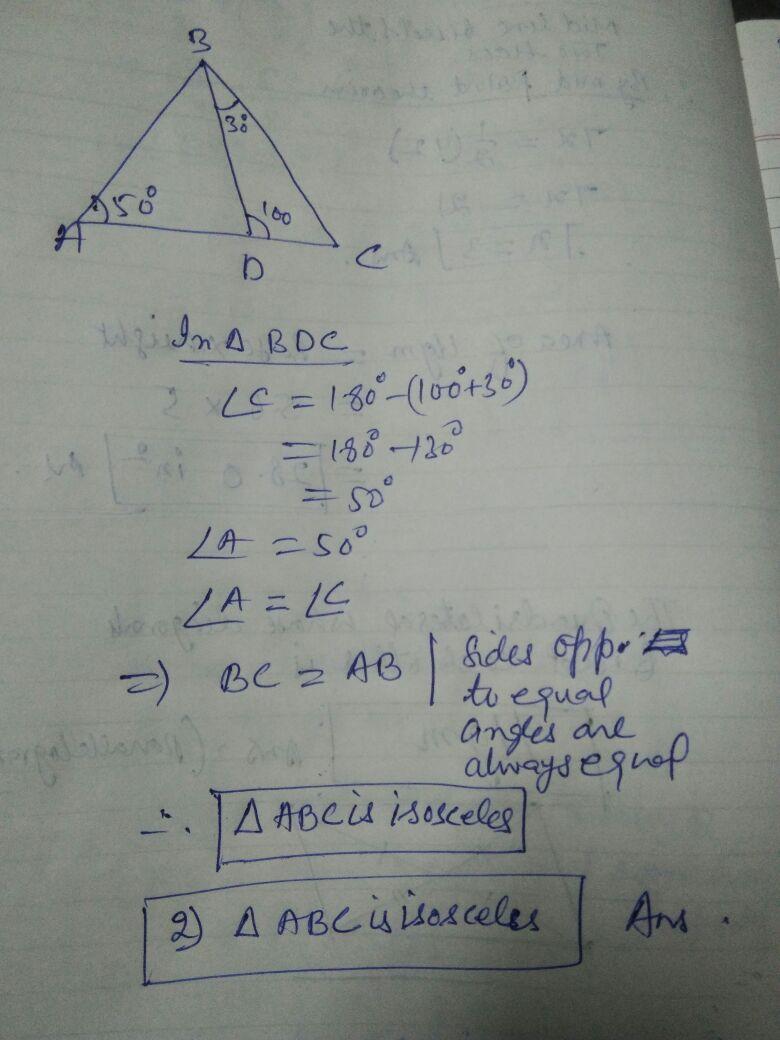 B
30°
50°
100
A
D
C
In Δ BDC
∠C = 180° - (100° + 30°)
= 180° - 130°
= 50°
∠A = 50°
∠A = ∠C
=> BC = AB | Sides opp.
to equal
angles are
always equal
∴ Δ ABC is isosceles
2) Δ ABC is isosceles Ans.